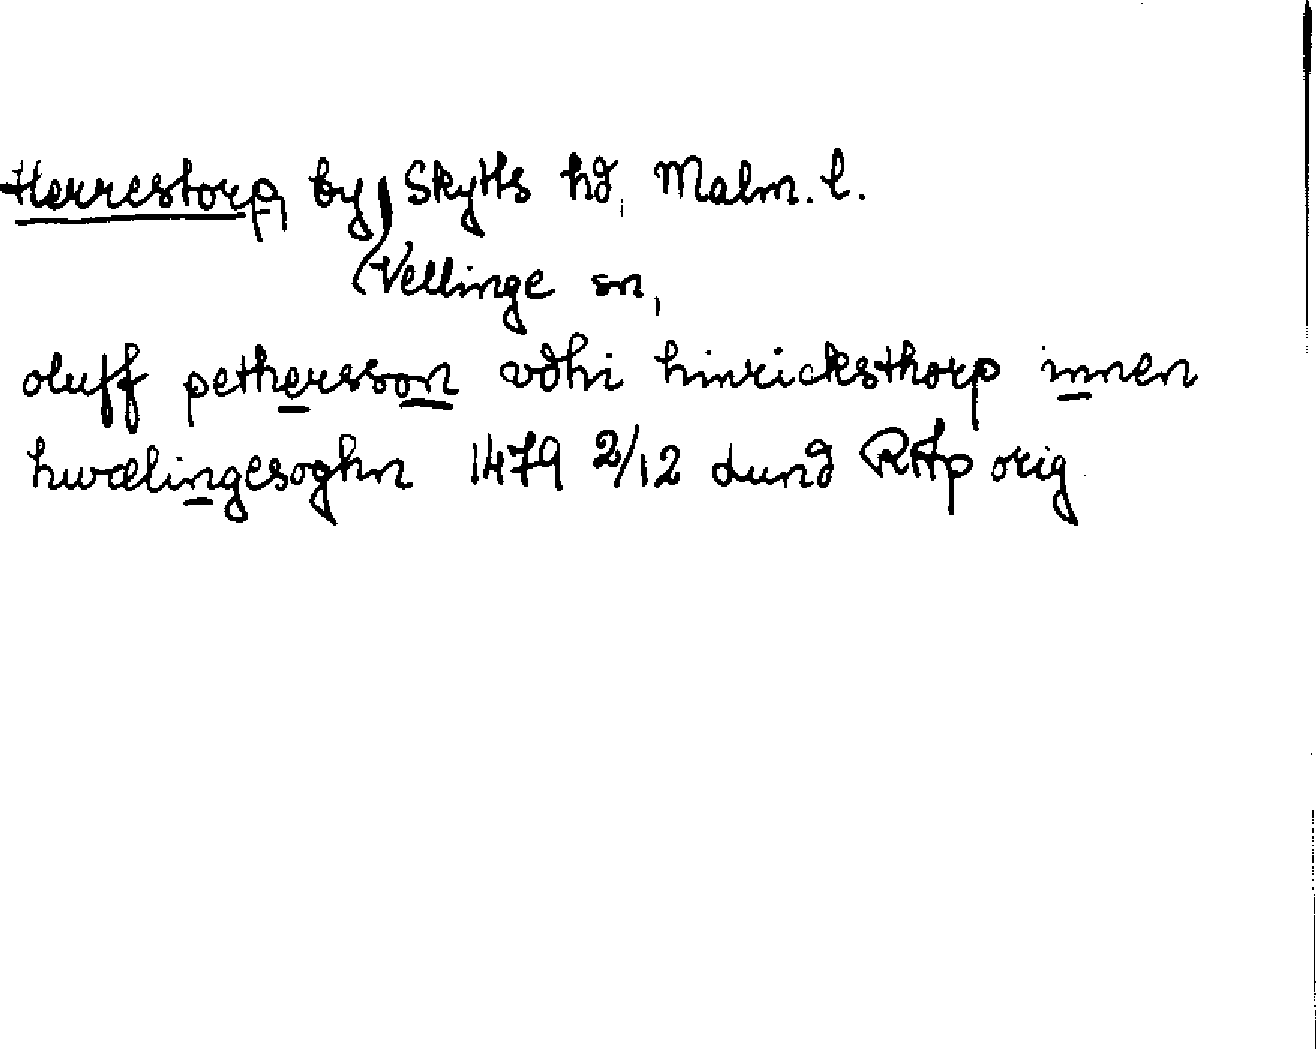 Herrestorp, by, Skytts hd, Malm. l.
Vellinge sn,
oluff pethersson vdhi hinricksthorp innen
hwælingesoghn 1479 2/12 Lund RAp orig